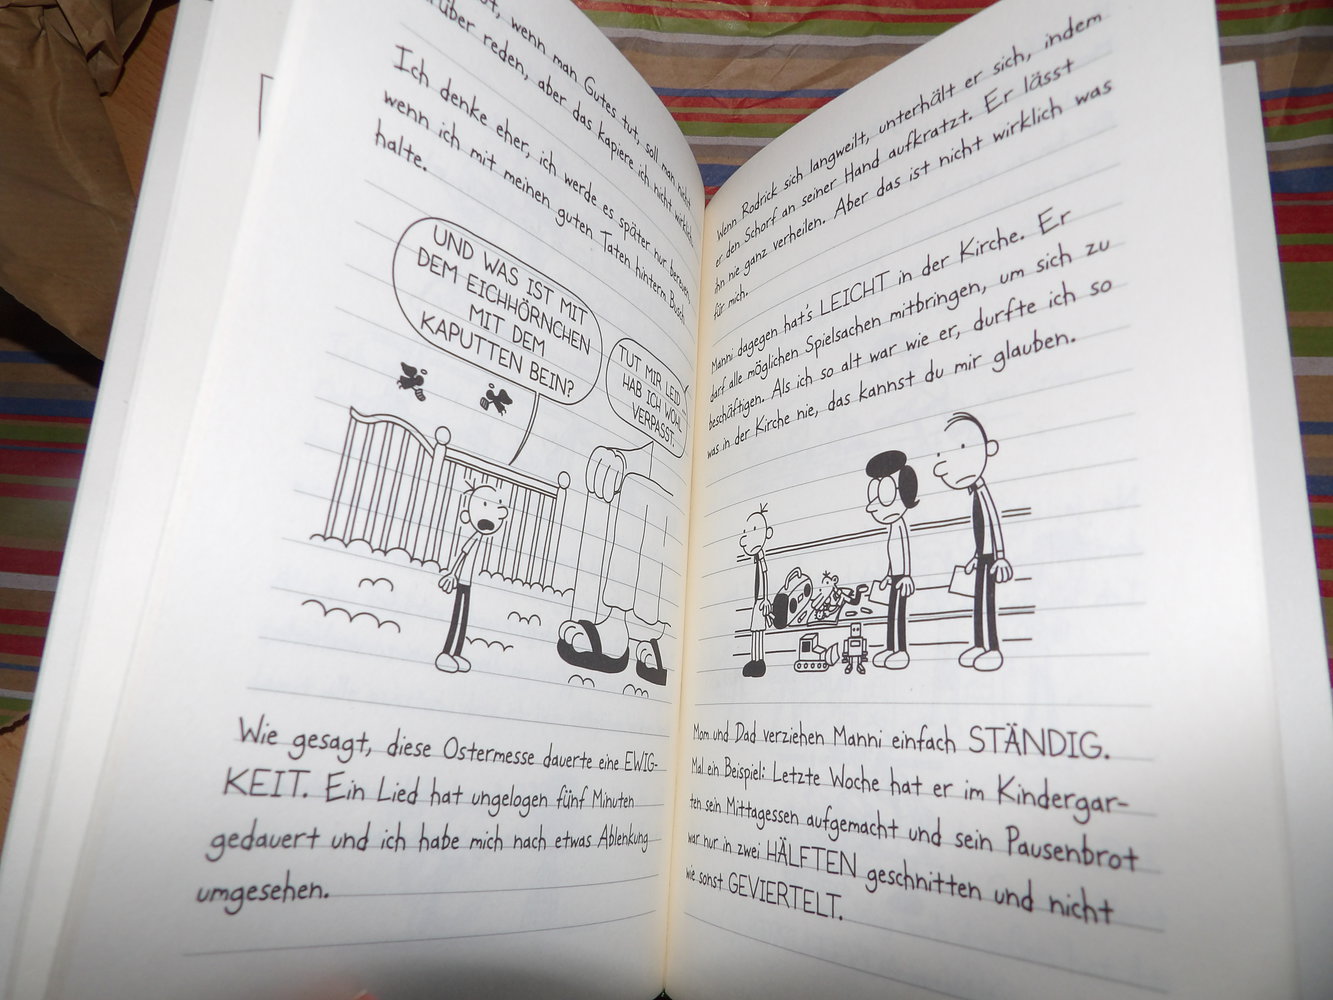 wenn man Gutes tut, soll man nicht
über reden, aber das kapiere ich nicht wirklich.
Ich denke eher, ich werde es später nur bereuen,
wenn ich mit meinen guten Taten hinterm Busch
halte.
UND WAS IST MIT
DEM EICHHÖRNCHEN
MIT DEM
KAPUTTEN BEIN?
TUT MIR LEID
HAB ICH WOHL
VERPASST.
Wie gesagt, diese Ostermesse dauerte eine EWIG-
KEIT. Ein Lied hat ungelogen fünf Minuten
gedauert und ich habe mich nach etwas Ablenkung
umgesehen.
Wenn Rodrick sich langweilt, unterhält er sich, indem
er den Schorf an seiner Hand aufkratzt. Er lässt
ihn nie ganz verheilen. Aber das ist nicht wirklich was
für mich.
Manni dagegen hat's LEICHT in der Kirche. Er
darf alle möglichen Spielsachen mitbringen, um sich zu
beschäftigen. Als ich so alt war wie er, durfte ich so
was in der Kirche nie, das kannst du mir glauben.
Mom und Dad verziehen Manni einfach STÄNDIG.
Mal ein Beispiel: Letzte Woche hat er im Kindergar-
ten sein Mittagessen aufgemacht und sein Pausenbrot
war nur in zwei HÄLFTEN geschnitten und nicht
wie sonst GEVIERTELT.